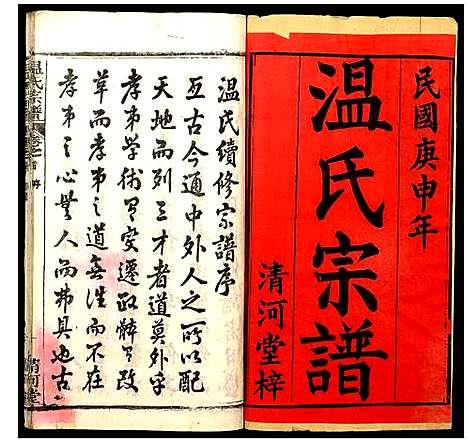 民國庚申年
温氏宗譜
清河堂梓
温氏續修宗譜序
亙古今通中外人之所以配
天地而列三才者道莫外乎
孝弟學術有變遷政體有改
革而孝弟之道無往而不在
孝弟之心無人而弗具也古
温氏宗譜
清河堂